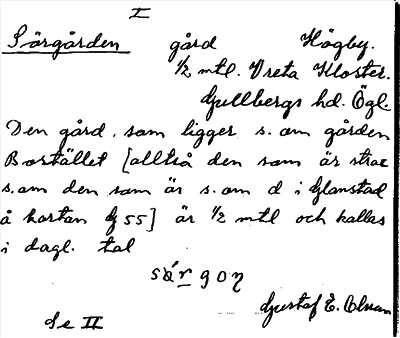 I
Sörgården gård Högby.
1/2 mtl. Vreta Kloster.
Gullbergs hd. Ögl.
Den gård, som ligger s. om gården
Bostället [alltså den som är strax
s. om den som är s. om d i Glanstad
å kartan G 55] är 1/2 mtl och kallas
i dagl. tal
Gustaf E.
Se II